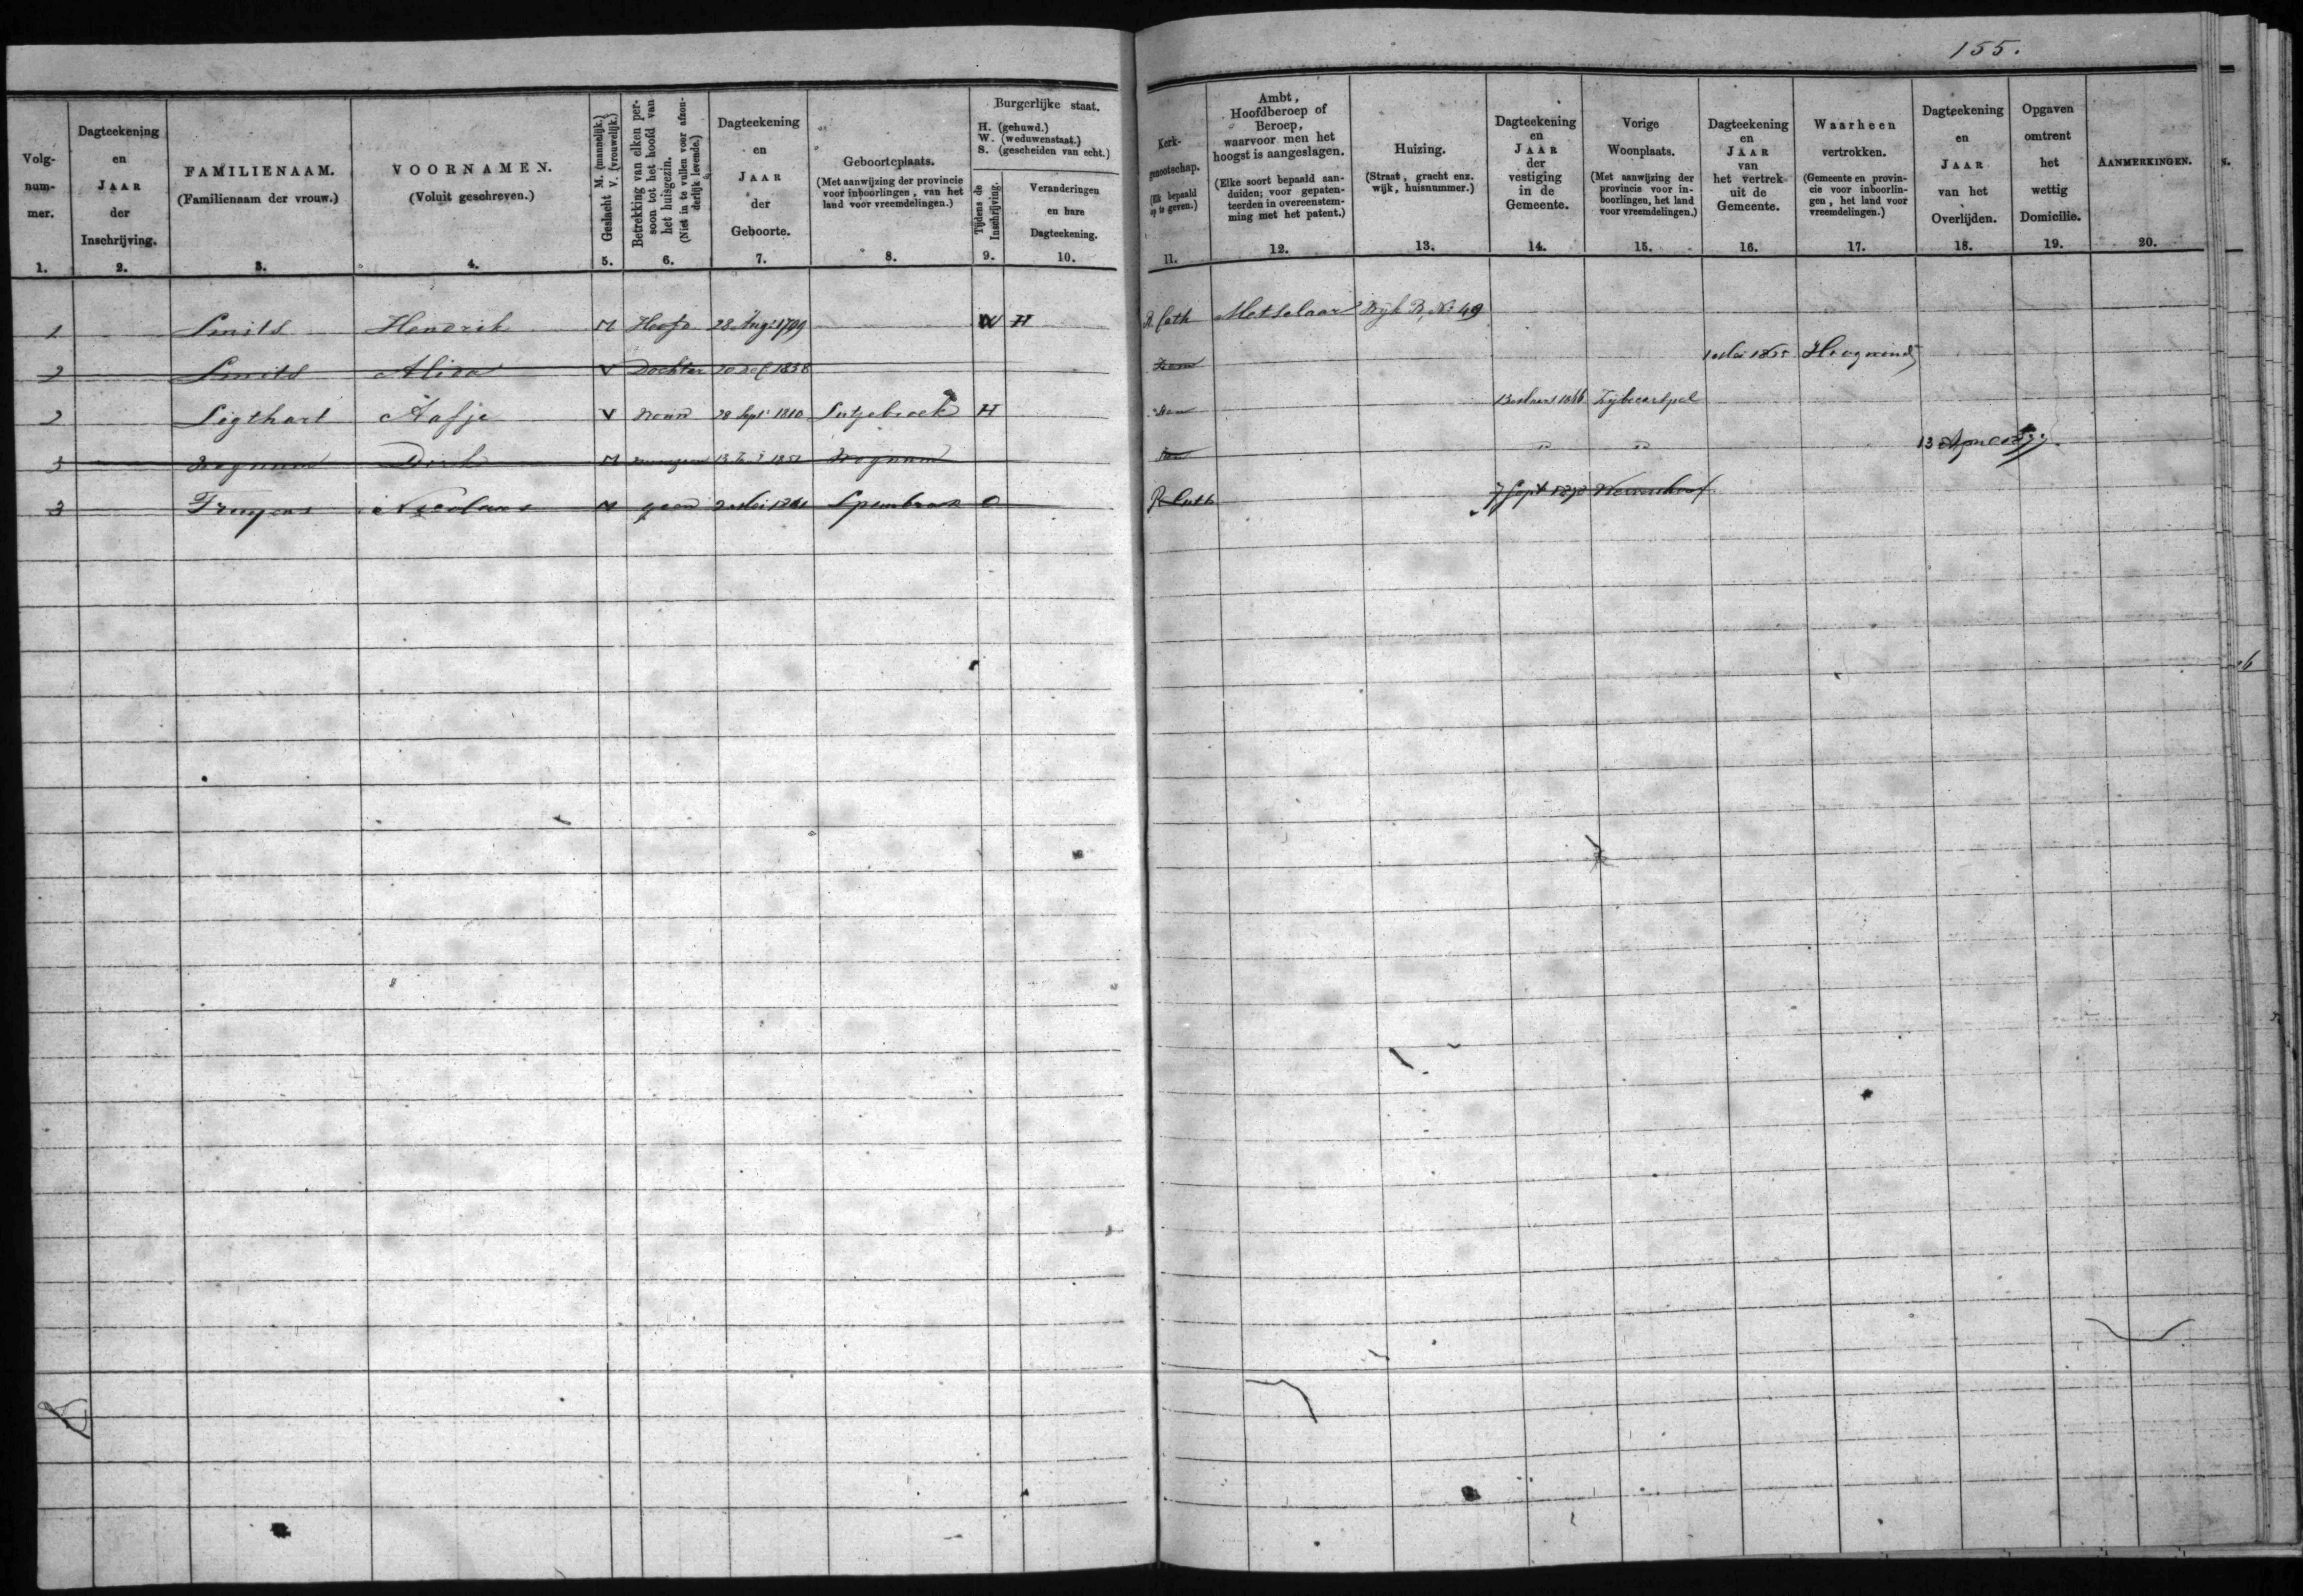 155.
Volg-
num-
mer.
1.
Dagteekening
en
JAAR
der
Inschrijving.
2.
FAMILIENAAM.
(Familienaam der vrouw.)
3.
VOORNAMEN.
(Voluit geschreven.)
4.
Geslacht M. (mannelijk.)
V. (vrouwelijk.)
5.
Betrekking van elken per-
soon tot het hoofd van
het huisgezin.
(Niet in te vullen voor afzon-
derlijk levende.)
6.
Dagteekening
en
JAAR
der
Geboorte.
7.
Geboorteplaats.
(Met aanwijzing der provincie
voor inboorlingen, van het
land voor vreemdelingen.)
8.
Burgerlijke staat.
H. (gehuwd.)
W. (weduwenstaat.)
S. (gescheiden van echt.)
Tijdens de
Inschrijving.
9.
Veranderingen
en hare
Dagteekening.
10.
Kerk-
genootschap.
(Elk bepaald
op te geven.)
11.
Ambt,
Hoofdberoep of
Beroep,
waarvoor men het
hoogst is aangeslagen.
(Elke soort bepaald aan-
duiden; voor gepaten-
teerden in overeenstem-
ming met het patent.)
12.
Huizing.
(Straat, gracht enz.
wijk, huisnummer.)
13.
Dagteekening
en
JAAR
der
vestiging
in de
Gemeente.
14.
Vorige
Woonplaats.
(Met aanwijzing der
provincie voor in-
boorlingen, het land
voor vreemdelingen.)
15.
Dagteekening
en
JAAR
van
het vertrek
uit de
Gemeente.
16.
Waarheen
vertrokken.
(Gemeente en provin-
cie voor inboorlin-
gen, het land voor
vreemdelingen.)
17.
Dagteekening
en
JAAR
van het
Overlijden.
18.
Opgaven
omtrent
het
wettig
Domicilie.
19.
AANMERKINGEN.
20.
1 Smits Hendrik M Hoofd 28 Aug: 1799 W H R Cath Metselaar Wijk B, No 49
2 Smits Alida V Dochter 1838 Idem 1 Mei 1865 Hoogwoud
2 Ligthart Aafje V Vrouw 28 Sept 1810 Lutjebroek H Idem 13 Maart 1866 Sijbecarspel
3 Dirk M 13 Wognum " " 13 April
3 Nicolaas M geen 2 Mei 1861 Spanbroek O R Cath 7 Sept Wervershoof